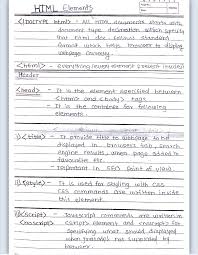 HTML Elements
<!DOCTYPE html> :- All HTML documents starts with
document type declaration which specify
that html doc. follows standard
format which helps browser to display
webpage correctly
<html> :- everything (every element) reside inside
Header
<head> :- is the element specified between
<html> and <body> tags.
- It is the container for following
elements.
<title> :- It provide title to webpage to be
displayed in browser's tab, search
engine results, when page added to
favourite etc.
- important in SEO's point of view.
<style> :- It is used for styling with CSS
CSS commands are written inside
this element.
<script> :- Javascript commands are written in
<noscript> elements and <noscript> for
specifying what should displayed
when javascript not supported by
browser.